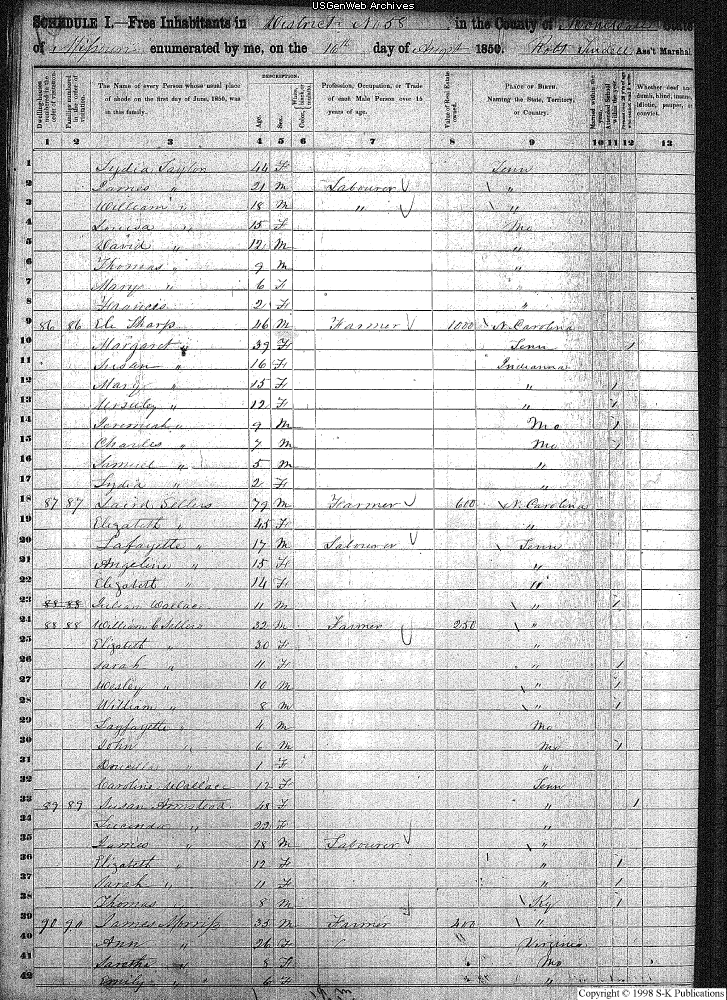 USGenWeb Archives
SCHEDULE I.—Free Inhabitants in District No 58 in the County of State
of Missouri enumerated by me, on the 16th day of August 1850. Robt Ass't Marshal
DESCRIPTION.
Dwelling-houses numbered in the order of visitation.
Families numbered in the order of visitation.
The Name of every Person whose usual place of abode on the first day of June, 1850, was in this family.
Age.
Sex.
Color, White, black or mulatto.
Profession, Occupation, or Trade of each Male Person over 15 years of age.
Value of Real Estate owned.
PLACE OF BIRTH. Naming the State, Territory, or Country.
Married within the year.
Whether deaf and dumb, blind, insane, idiotic, pauper, or convict.
1 2 3 4 5 6 7 8 9 10 11 12 13
1 Lydia Taylor 44 F Tenn
2 James " 21 M Labourer "
3 William " 18 M " "
4 Louisa " 15 F Mo
5 David " 12 M "
6 Thomas " 9 M "
7 Mary " 6 F "
8 Frances 2 F "
9 86 86 Eli Sharp 46 M Farmer 1000 N. Carolina
10 Margaret " 39 F Tenn 1
11 Susan " 16 F Indianna
12 Mary " 15 F " 1
13 " 12 F " 1
14 Jeremiah " 9 M Mo 1
15 Charles " 7 M Mo 1
16 Samuel " 5 M "
17 Lydia " 2 F "
18 87 87 Laird Sellers 79 M Farmer 600 N. Carolina
19 Elizabeth " 45 F "
20 Lafayette " 17 M Labourer Tenn
21 Angeline " 15 F "
22 Elizabeth " 14 F "
23 88 88 Wallace 11 M " 1
24 88 88 William C Sellers 32 M Farmer 250 "
25 Elizabeth " 30 F "
26 Sarah " 11 F " 1
27 Wesley " 10 M " 1
28 William " 8 M " 1
29 Layfayette " 4 M Mo
30 John " 6 M Mo 1
31 " 1 F "
32 Caroline Wallace 12 F Tenn
33 89 89 Susan Armstead 48 F " 1
34 Lucinda " 22 F "
35 James " 18 M Labourer "
36 Elizabeth " 12 F " 1
37 Sarah " 11 F " 1
38 Thomas " 8 M Ky 1
39 90 90 James Morris 35 M Farmer 400 "
40 Ann " 26 F Virginia
41 " 8 F Mo
42 Emily " 6 F "
Copyright © 1998 S-K Publications